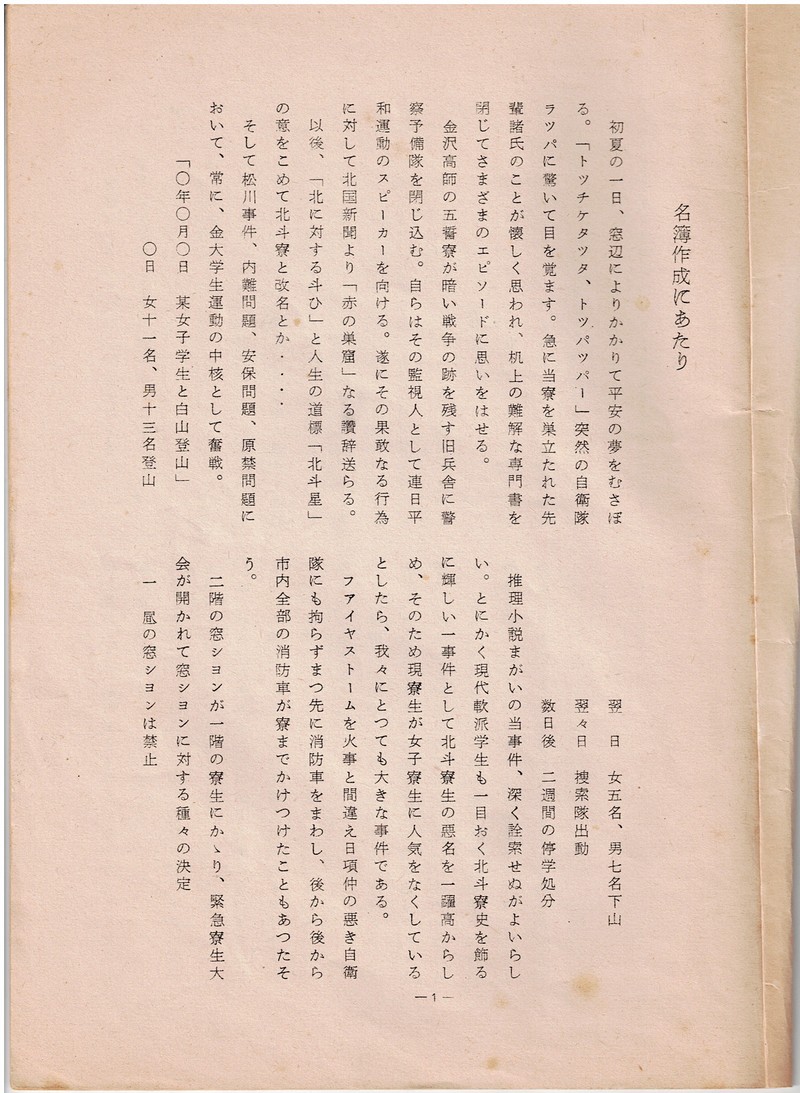 名簿作成にあたり
初夏の一日、窓辺によりかかりて平安の夢をむさぼ
る。「トツチケタツタ、トツパツパー」突然の自衛隊
ラツパに驚いて目を覚ます。急に当寮を巣立たれた先
輩諸氏のことが懐しく思われ、机上の難解な専門書を
閉じてさまざまのエピソードに思いをはせる。
金沢高師の五誓寮が暗い戦争の跡を残す旧兵舎に警
察予備隊を閉じ込む。自らはその監視人として連日平
和運動のスピーカーを向ける。遂にその果敢なる行為
に対して北国新聞より「赤の巣窟」なる讃辞送らる。
以後、「北に対する斗ひ」と人生の道標「北斗星」
の意をこめて北斗寮と改名とか・・・・
そして松川事件、内難問題、安保問題、原禁問題に
おいて、常に、金大学生運動の中核として奮戦。
「〇年〇月〇日　某女子学生と白山登山」
〇日　女十一名、男十三名登山
翌　日　女五名、男七名下山
翌々日　捜索隊出動
数日後　二週間の停学処分
推理小説まがいの当事件、深く詮索せぬがよいらし
い。とにかく現代軟派学生も一目おく北斗寮史を飾る
に輝しい一事件として北斗寮生の悪名を一躍高からし
め、そのため現寮生が女子寮生に人気をなくしている
としたら、我々にとつても大きな事件である。
フアイヤストームを火事と間違え日項仲の悪き自衛
隊にも拘らずまつ先に消防車をまわし、後から後から
市内全部の消防車が寮までかけつけたこともあつたそ
う。
二階の窓シヨンが一階の寮生にかゝり、緊急寮生大
会が開かれて窓シヨンに対する種々の決定
一　昼の窓シヨンは禁止
—1—